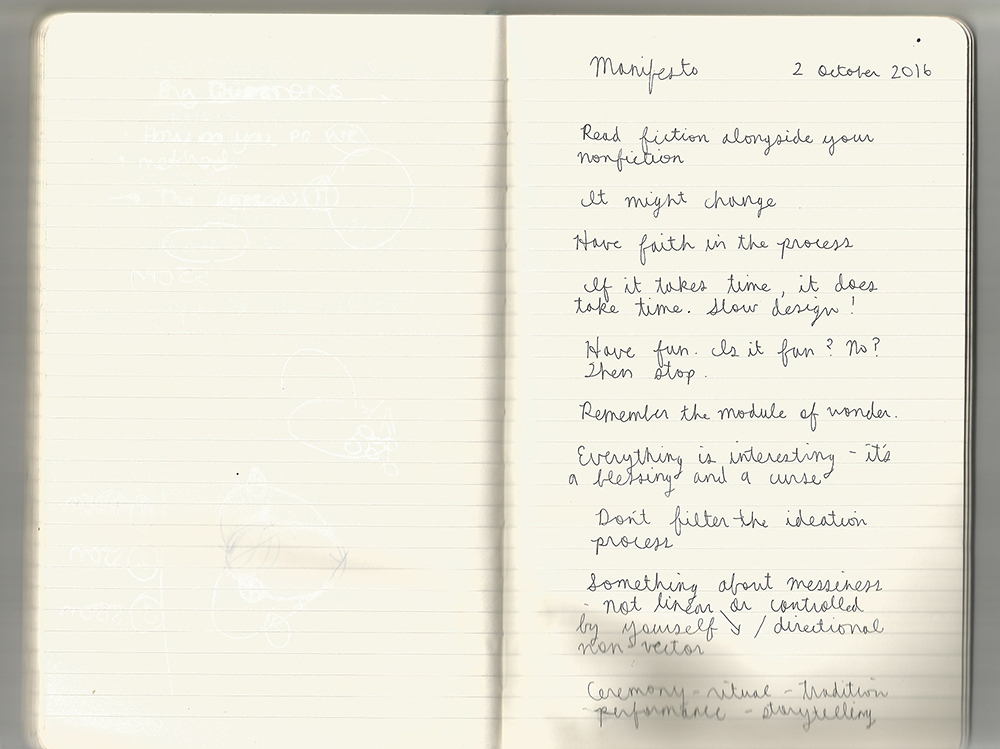 Manifesto 2 October 2016
Read fiction alongside your
nonfiction
It might change
Have faith in the process
If it takes time, it does
take time. Slow design!
Have fun. Is it fun? No?
Then stop.
Remember the module of wonder.
Everything is interesting - it's
a blessing and a curse
Don't filter the ideation
process
Something about messiness
not linear or controlled
by yourself ↘ / directional
non vector
Ceremony - ritual - tradition
- performance - storytelling